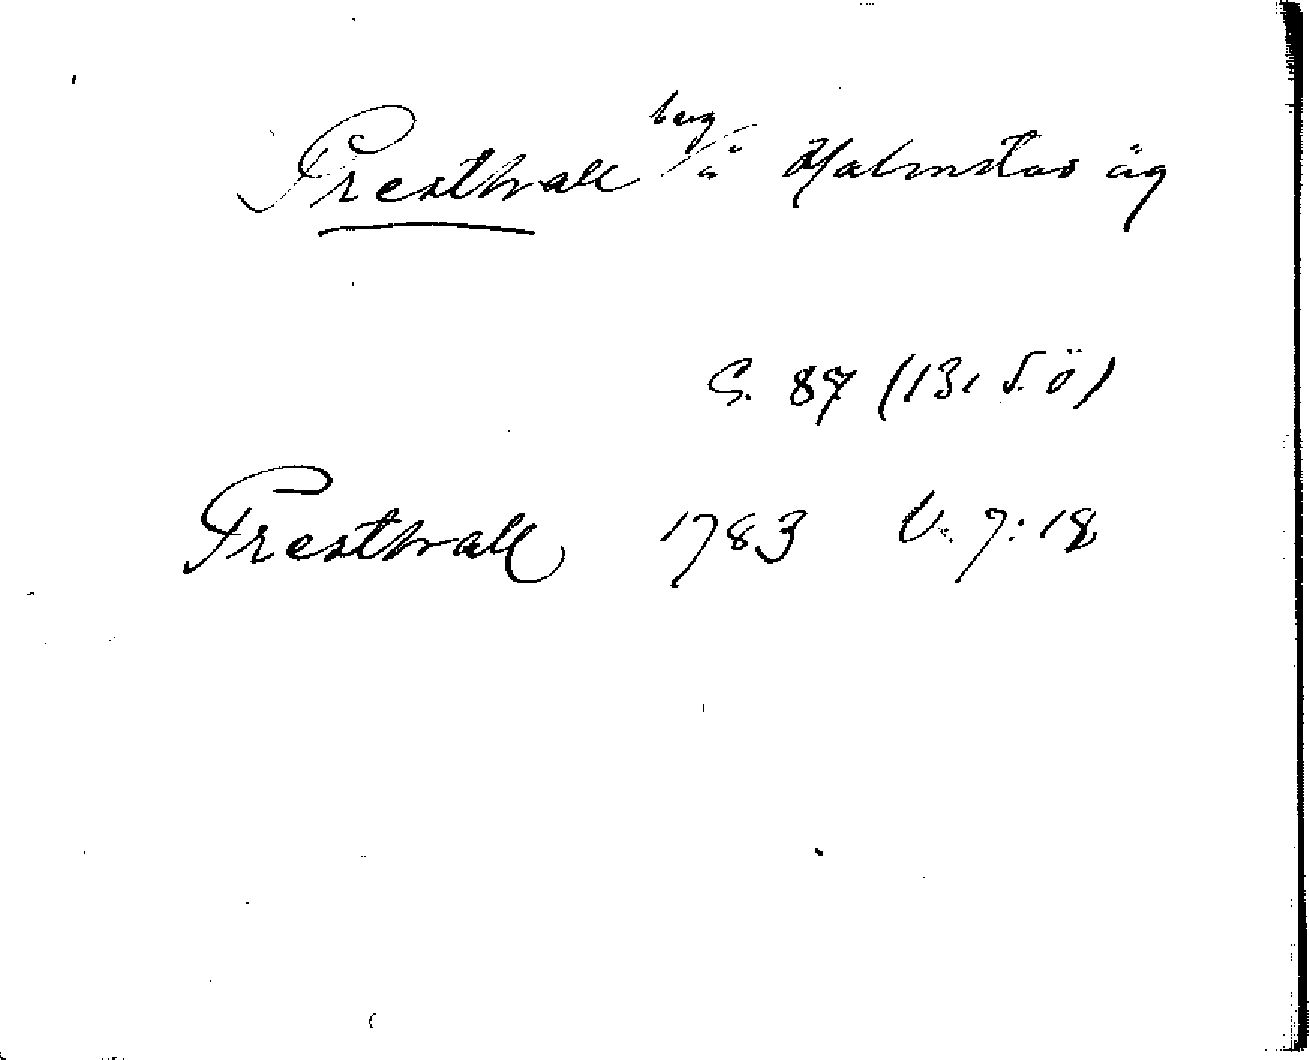 Presthvall berg å Halmstad äg
G. 87 (131 S. Ö)
Presthvall 1783 V. 7:18